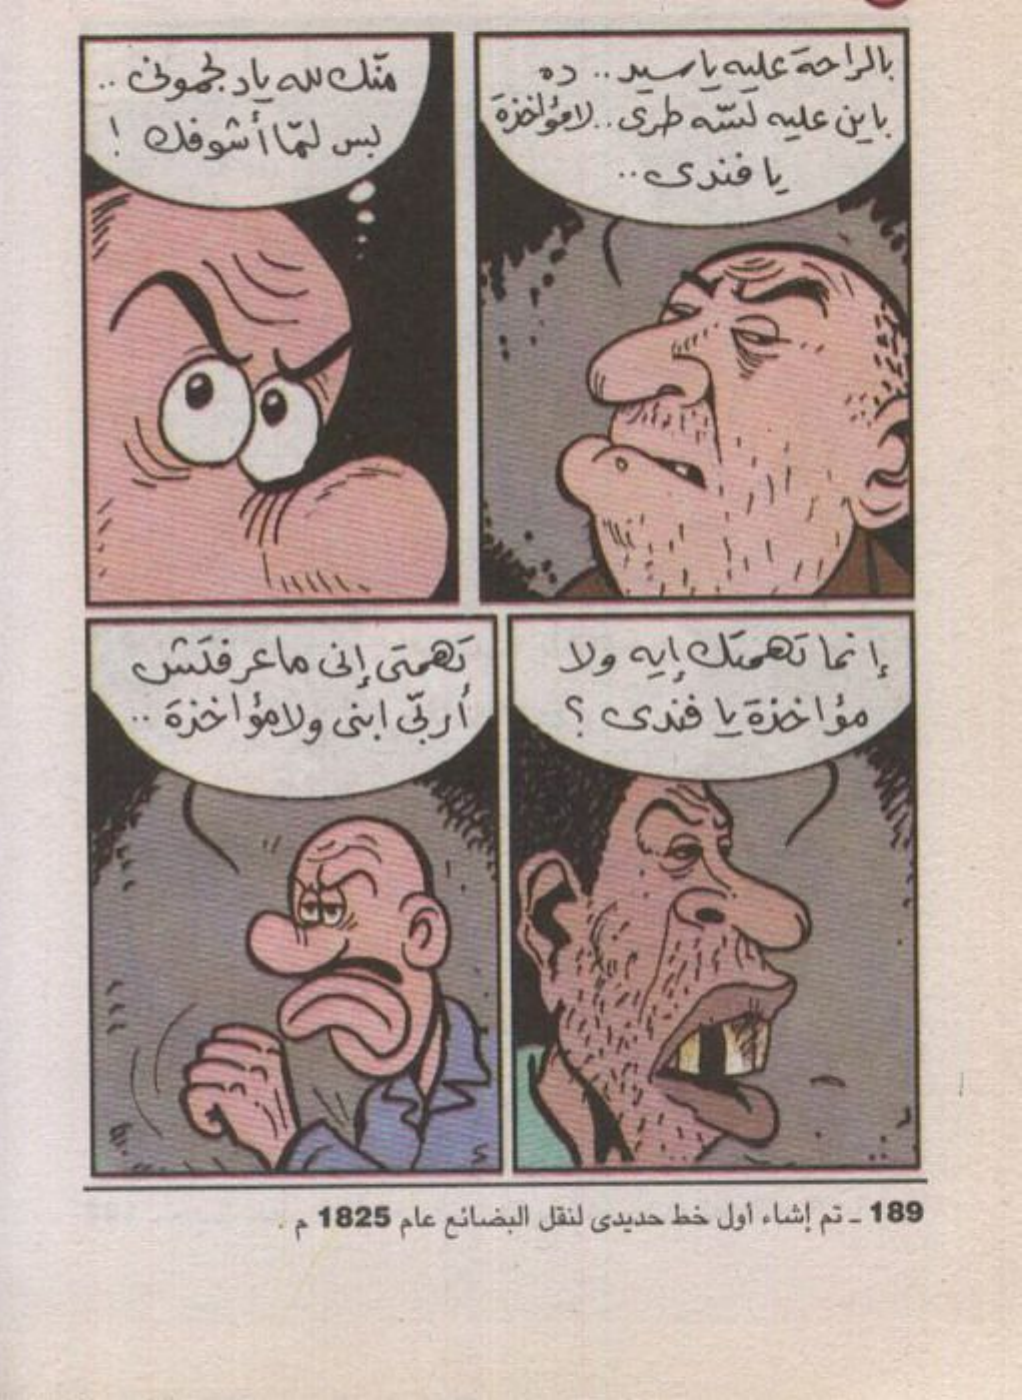 بالراحة عليه يا سيد.. ده
باين عليه لسّه طرى.. لامؤاخذة
يا فندى..
منّك لله ياد لجمونى ..
بس لمّا أشوفك !
إنما تهمتك إيه ولا
مؤاخذة يا فندى ؟
تهمتى إنى ماعرفتش
أربّى ابنى ولامؤاخذة ..
189 ـ تم إشاء أول خط حديدى لنقل البضائع عام 1825 م .